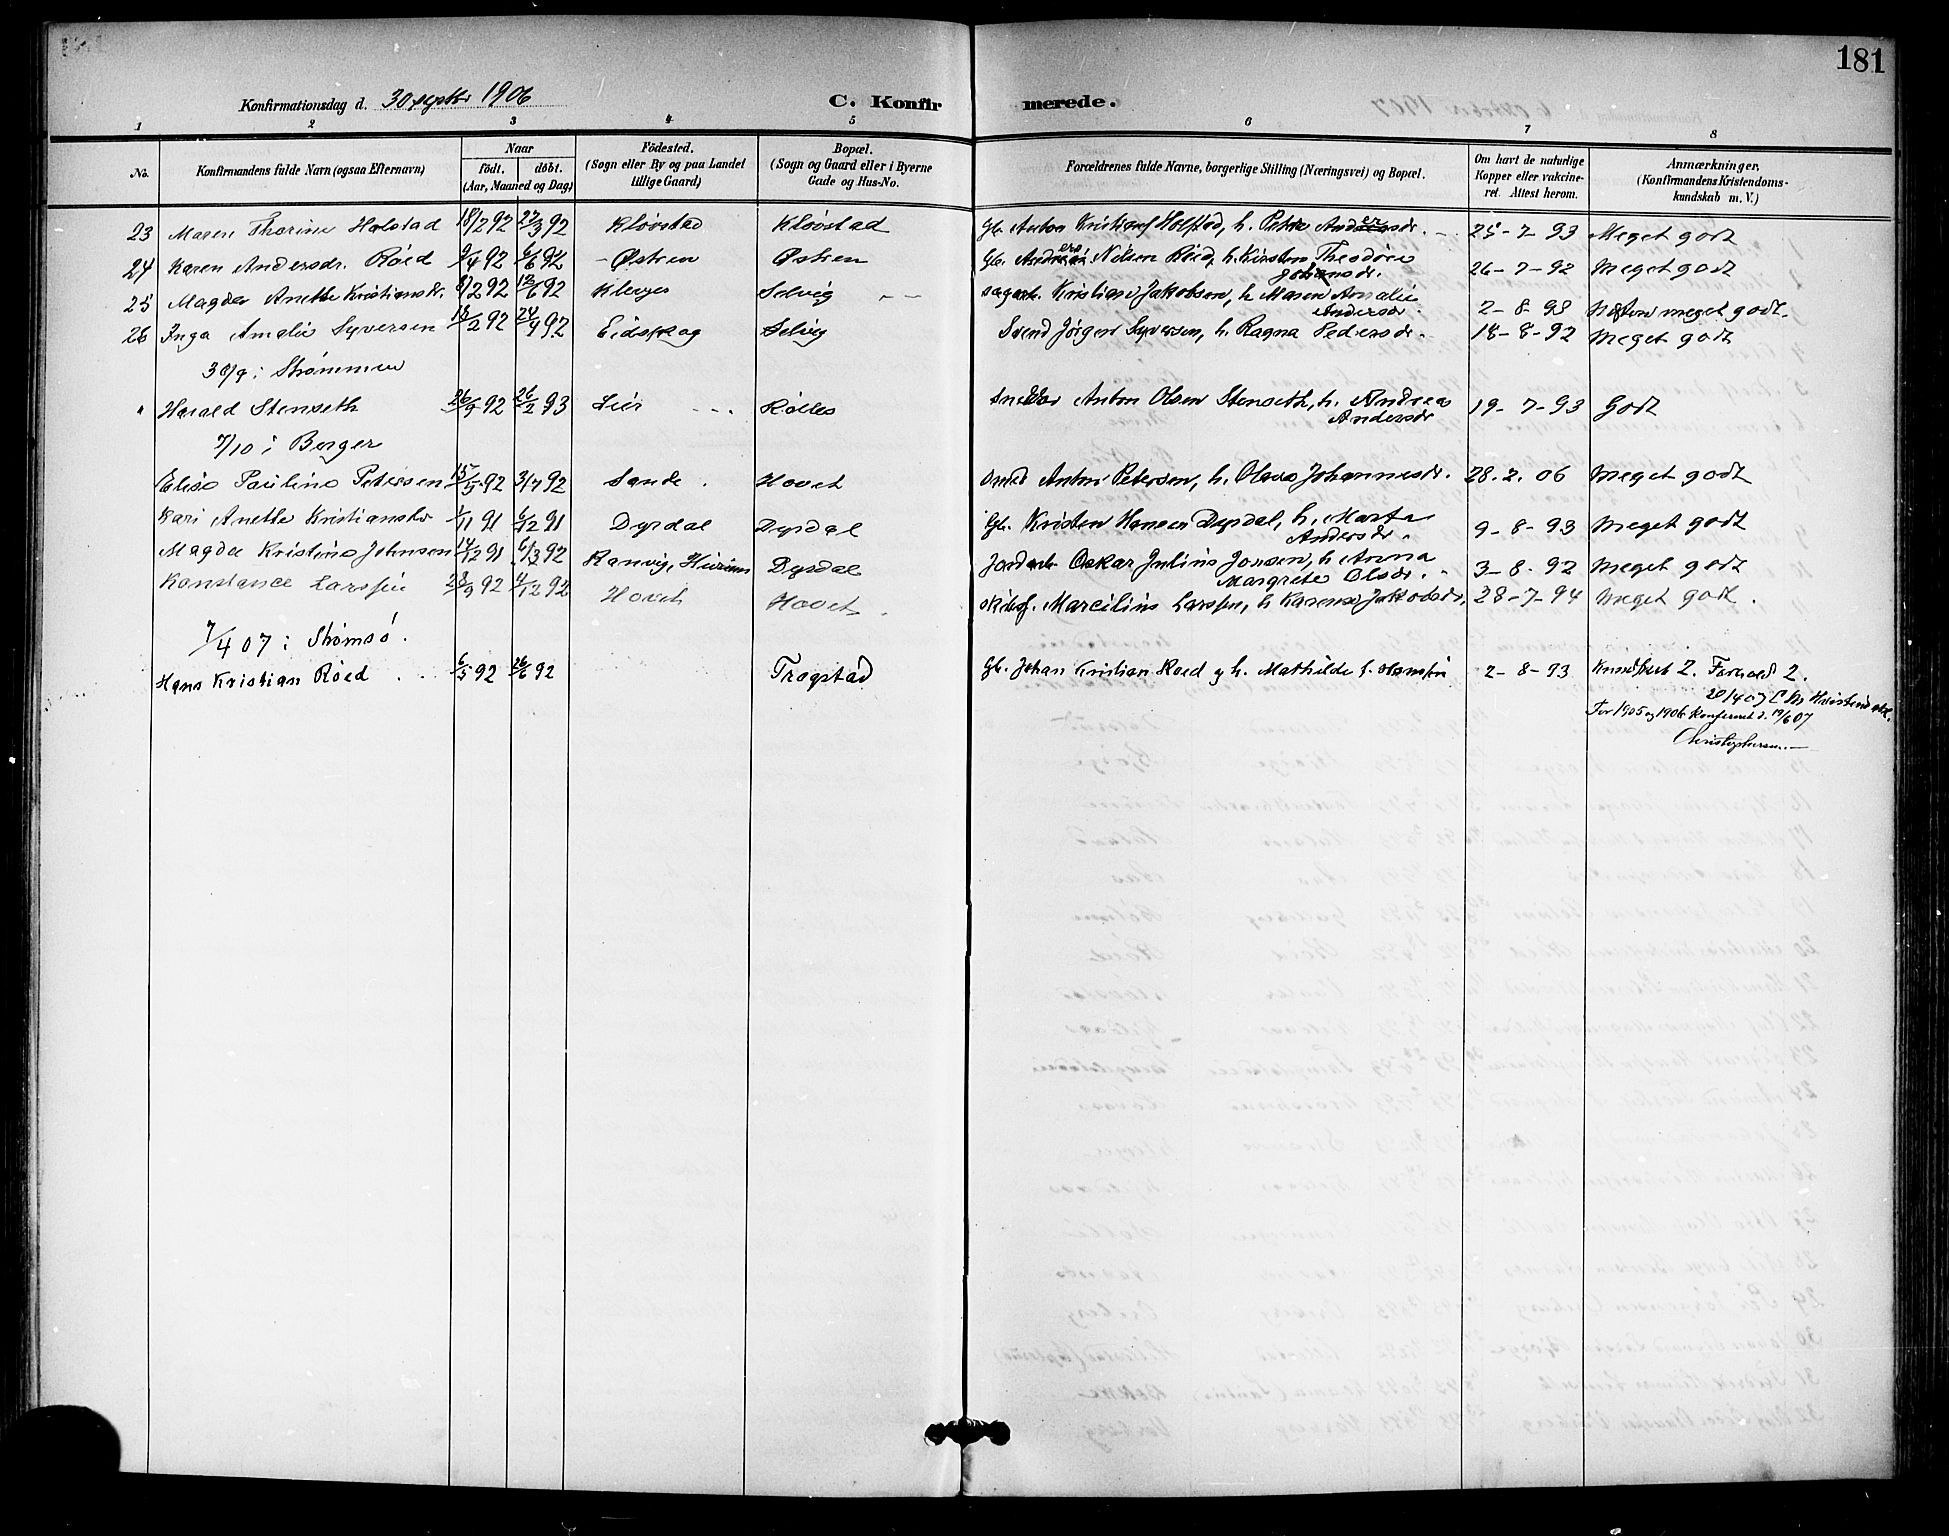 181
Konfirmationsdag d. 30 septbr 1906 C. Konfirmerede.
1 2 3 4 5 6 7 8
No. Konfirmandens fulde Navn (ogsaa Efternavn) Naar födt. döbt. (Aar, Maaned og Dag) Födested. (Sogn eller By og paa Landet tillige Gaard) Bopæl. (Sogn og Gaard eller i Byerne Gade og Hus-No. Forældrenes fulde Navne, borgerlige Stilling (Næringsvei) og Bopæl. Om havt de naturlige Kopper eller vakcineret. Attest herom. Anmærkninger, (Konfirmandens Kristendomskundskab m. V.)
23 Maren Thorine Holstad 18/2 92 27/3 92 Kløvstad Kløvstad Gb. Anton Kristian Holstad, h. Petra Andersdr. 25-7-93 Meget godt
24 Karen Andersdr. Röed 9/4 92 6/6 92 Østren Østren Gb. Anders Nilsen Röed, h. Kirsten Theodora Johansdr. 26-7-92 Meget godt
25 Magda Anette Kristiansdr. 8/2 92 12/6 92 Klever Selvig sagarb. Kristian Jakobsen, h. Maren Amalie Andersdr. 2-8-93 Næsten meget godt.
26 Inga Amalie Syversen 18/2 92 24/4 92 Eidskog Selvig Svend Jörgen Syversen, h. Ragna Pedersdr. 18-8-92 Meget godt
30/9 i Strømmen
" Harald Stenseth 26/9 92 26/2 93 Lier Rölles Snedker Anton Olsen Stenseth, h. Andrea Andersdr 19-7-93 Godt
7/10 i Berger
Elise Pauline Petersen 15/5 92 3/7 92 Sande Hovet Smed Anton Petersen, h. Olava Johannesdr. 28.2.06 Meget godt
Kari Anette Kristiansdr 1/11 91 6/12 91 Dyrdal Dyrdal Gb. Kristen Hansen Dyrdal, h. Marta Andersdr. 9-8-93 Meget godt
Magda Kristine Johnsen 14/12 91 6/3 92 Ranvig, Hurum Dyrdal Jordarb. Oskar Julius Jonsen, h. Anna Margrete Olsdr. 3-8-92 Meget godt
Konstance Larssen 28/9 92 4/12 92 Hovet Hovet Marcilius Larssen, h. Karense Jakobsdr, 28-7-94 Meget godt.
7/4 07 i Strømsö.
Hans Kristian Röed 6/5 92 26/6 92 Tragstad Gb. Johan Kristian Roed og h. Mathilde f. Hansen 2-8-93 Kundskab 2. Forhold 2.
20/4 07
For 1905 og 1906 Konfereret d. 19/6 07
Christophersen